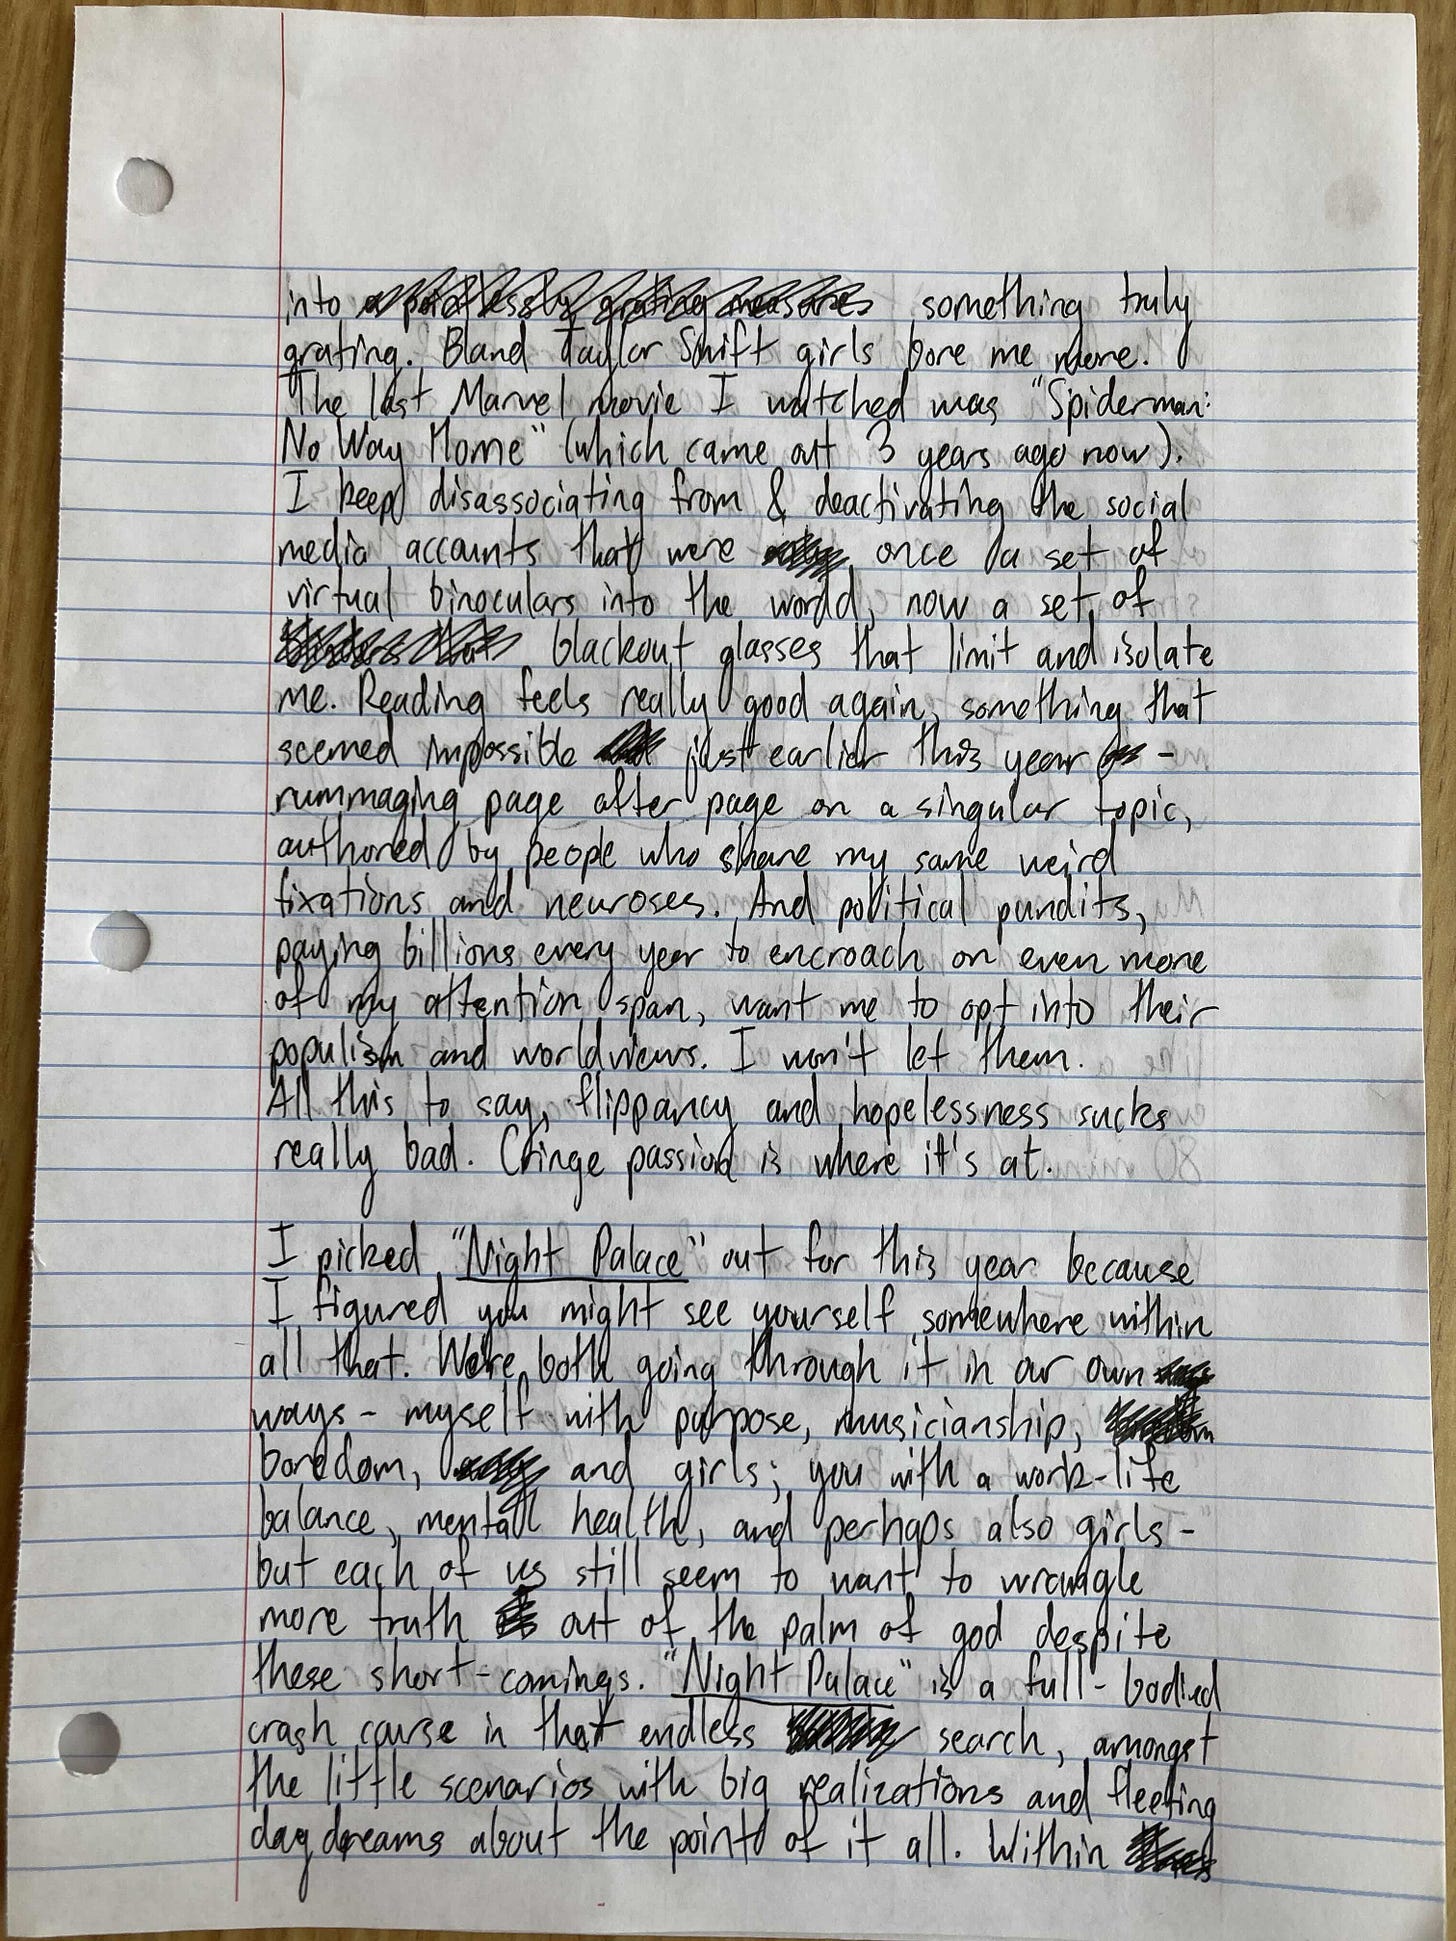 into something truly
grating. Bland Taylor Swift girls bore me more.
The last Marvel movie I watched was "Spiderman:
No Way Home" (which came out 3 years ago now).
I keep disassociating from & deactivating the social
media accounts that were once a set of
virtual binoculars into the world, now a set of
blackout glasses that limit and isolate
me. Reading feels really good again, something that
seemed impossible just earlier this year -
rummaging page after page on a singular topic,
authored by people who share my same weird
fixations and neuroses. And political pundits,
paying billions every year to encroach on even more
of my attention span, want me to opt into their
populism and worldviews. I won't let them.
All this to say, flippancy and hopelessness sucks
really bad. Cringe passion is where it's at.
I picked "Night Palace" out for this year because
I figured you might see yourself somewhere within
all that. We're both going through it in our own
ways - myself with purpose, musicianship,
boredom, and girls; you with a work-life
balance, mental health, and perhaps also girls -
but each of us still seem to want to wrangle
more truth out of the palm of god despite
these short-comings. "Night Palace" is a full-bodied
crash course in that endless search, amongst
the little scenarios with big realizations and fleeting
daydreams about the point of it all. Within